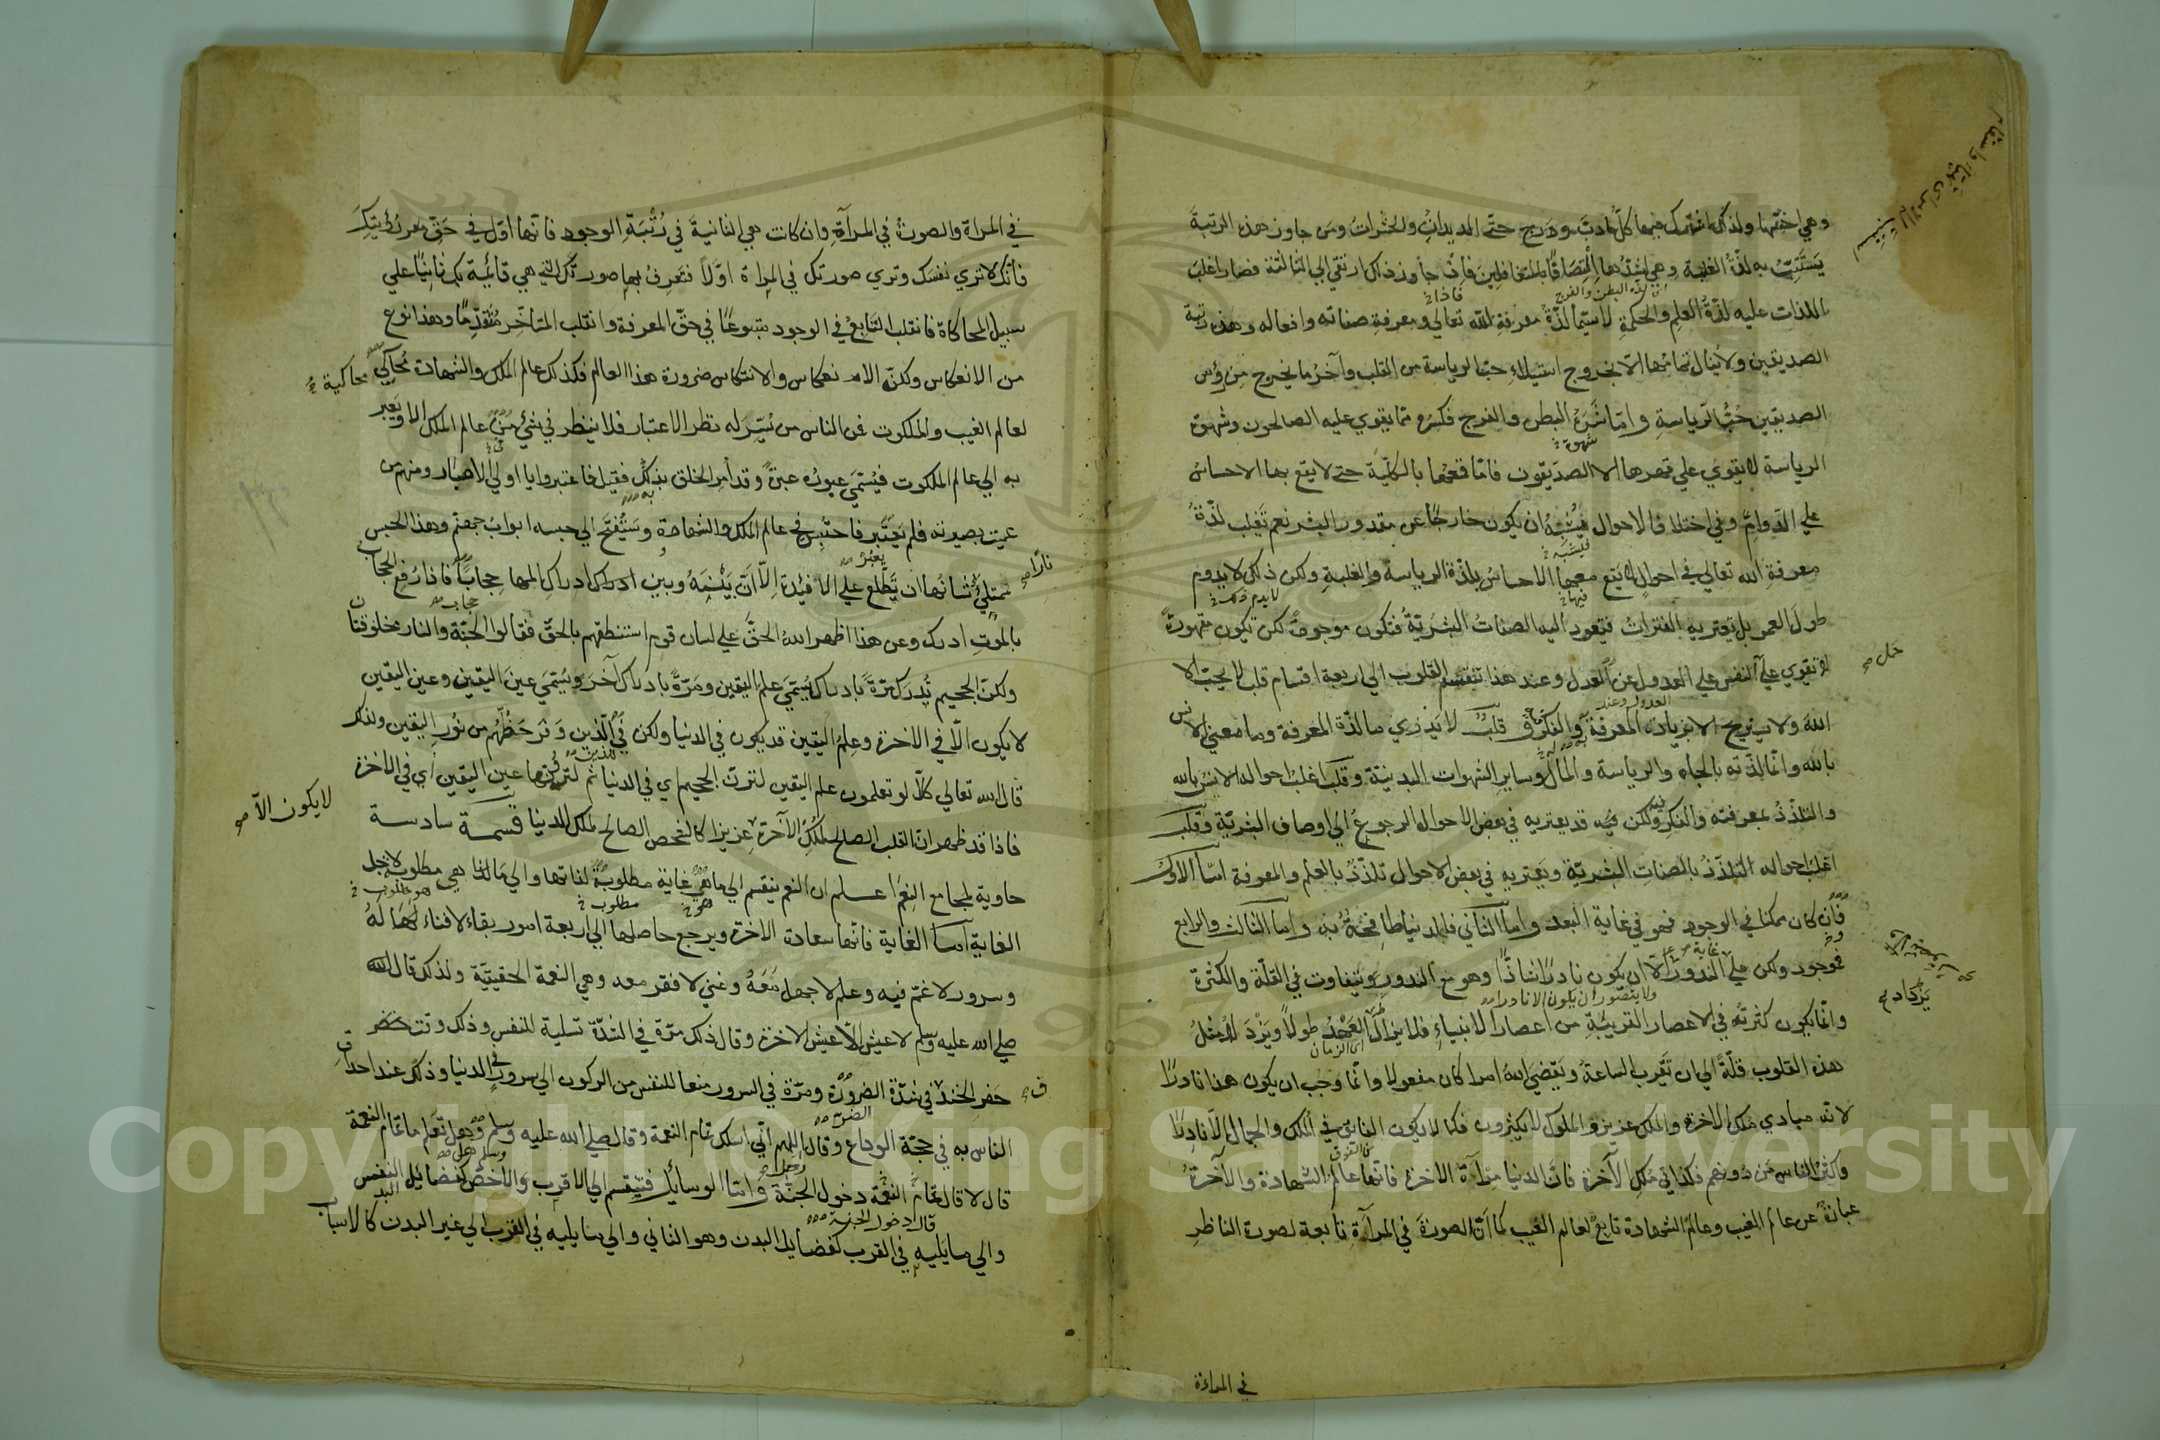 وهي اخسّها ولذلك اشترك فيها كلّ مادبّ ودرج حتّى الديدان والحشرات ومن جاوز هذه الرتبة
تشبّثت به لذّة الغلبة وهي اشدّها التصاقًا بالمتغافلين فان جاوز ذلك ارتقي الي الثالثة فصار اغلب
اللذات عليه لذّة العلم والحكمة لا سيّما لذّة معرفة الله تعالي ومعرفة صفاته وافعاله وهذه رتبة
الصديقين ولا ينال تمامها الّا بخروج استيلاء حبّ الرياسة من القلب وآخر ما يخرج من رؤس
الصديقين حُبّ الرّياسة وامّا شَرَهُ البطن والفرج فكسره ممّا يقوي عليه الصالحون وشهوة
الرياسة لا يقوي علي قهرها الا الصدّيقون فامّا قمعها بالكليّة حتى لا يقع بها الاحساس
علي الدّوام وفي اختلاف الاحوال فيشبه ان يكون خارجًا عن مقدور البشر نعم تغلب لذّة
معرفة الله تعالي في احوال لا يقع معها الاحساس بلذّة الرياسة والغلبة ولكن ذلك لا يدوم
طول العمر بل تعتريه الفترات فتعود اليه الصفات البشريّة فتكون موجودة لكن تكون مقهورة
لا تقوي علي النفس علي العدول عن العدل وعند هذا تنقسم القلوب الي اربعة اقسام قلب لا يحبّ الا
الله ولا يستريح الا بزيادة المعرفة والفكر فيه وقلب لا يدري ما لذّة المعرفة وما معني الانس
بالله وانّما لذّته بالجاه والرياسة والمال وساير الشهوات البدنيّة وقلب اغلب احواله الانس بالله
والتلذّذ بمعرفته والفكر فيه ولكن قد يعتريه في بعض الاحوال الرجوع الي اوصاف البشريّة وقلب
اغلب احواله التلذّذ بالصفات البشريّة ويعتريه في بعض الاحوال تلذّذ بالعلم والمعرفة امّا الاول
فان كان ممكنا في الوجود فهو في غاية البعد وامّا الثاني فالدنيا طافحة به وامّا الثالث والرابع
فموجود ولكن علي الندور الّا ان يكون نادرًا شاذًّا وهو مع الندور يتفاوت في القلّة والكثرة
وانّما يكون كثرته في الاعصار القريبة من اعصار الانبياء فلا يزال العهد طولًا ويزداد مثل
هذه القلوب قلّة الي ان تقرب الساعة ويقضي الله امرا كان مفعولا وانّما وجب ان يكون هذا نادرًا
لانّه مبادي ملك الاخرة والملك عزيز والملوك لا يكثرون فكما لا يكون الفائق في الملك والجمال الّا نادرًا
واكثر الناس من دونهم فكذا في ملك الآخرة فانّ الدنيا مرآة الاخرة فانّها عالم الشهادة والآخرة
عبارة عن عالم الغيب وعالم الشهادة تابع لعالم الغيب كما انّ الصورة في المرآة تابعة لصورة الناظر
في المرءاة
يزداد
في المرآة والصورة في المرآة وان كانت هي الثانية في رُتبة الوجود فانّها اوّل في حَقّ رؤيتك
فانّك لا تري نفسك وتري صورتك في المرآة اوّلًا فتعرف بها صورتك التي هي قائمة بك ثانيًا علي
سبيل المحاكاة فانقلب التابع في الوجود متبوعًا في حقّ المعرفة وانقلب المتأخّر متقدّمًا وهذا نوع
من الانعكاس ولكنّ الانعكاس والانتكاس ضرورة هذا العالم فكذلك عالم الملك والشهادة مُحاكي
محاكية
لعالم الغيب والملكوت فمن الناس من يُسّر له نظر الاعتبار فلا ينظر في شيء من عالم الملك الا ويعبر
به الي عالم الملكوت فيُسمّي عبوره عبرة وقد أمر الخلق بذلك فقيل فاعتبروا يا اولي الابصار ومنهم من
عميت بصيرته فلم يعتبر فاحتبس في عالم الملك والشهادة وستُفتح الي حبسه ابواب جهنم وهذا الحبس
نارًا
ممتلئ شانها ان تطّلع علي الافئدة الّا انّ بينه وبين ادراك المها حجابًا فاذا رُفع الحجاب
بالموت ادرك وعن هذا اظهر الله الحقّ علي لسان قوم استنطقهم بالحقّ فقالوا الجنّة والنار مخلوقتان
ولكن الجحيم تُدرك مرّة بادراك يُسمّي علم اليقين ومرّة بادراك آخر ويُسمّي عين اليقين وعين اليقين
لا يكون الّا في الاخرة وعلم اليقين قد يكون في الدنيا ولكن في الّذين وفر حظّهم من نور اليقين ولذلك
قال الله تعالي كلّا لو تعلمون علم اليقين لترونّ الجحيم اي في الدنيا ثم لترونّها عين اليقين اي في الاخرة
لا يكون الّا
فاذا قد ظهر انّ القلب الصالح لملك الآخرة عزيزا كالشخص الصالح لملك الدنيا قسمة سادسة
حاوية لمجامع النعم اعلم ان النعم ينقسم الي ما هي غاية مطلوبة لذاتها والي ما هي مطلوبة لاجل
الغاية امّا الغاية فانّها سعادة الاخرة ويرجع حاصلها الي اربعة امور بقاء لا فناء له
وسرور لا غمّ فيه وعلم لا جهل معه وغني لا فقر معه وهي النعمة الحقيقيّة ولذلك قال
صلي الله عليه وسلم لا عيش الّا عيش الاخرة وقال ذلك مرّة في الشدّة تسلية للنفس وذلك وقت حفر
حفر الخندق في شدّة الضرورة ومرّة في السرور منعا للنفس من الركون الي سرور الدنيا وذلك عند احداق
الناس به في حجّة الوداع وقال اللهم انّي اسلك تمام النعمة وقال صلي الله عليه وسلم وهل تعلم ما تمام النعمة
قال لا قال تمام النعمة دخول الجنّة وامّا الوسائل فتنقسم الي الاقرب والاخصّ كفضايل النفس
والي ما يليه في القرب كفضايل البدن وهو الثاني والي ما يليه في القرب الي غير البدن كالاسباب
Copyright © King Saud University
1957